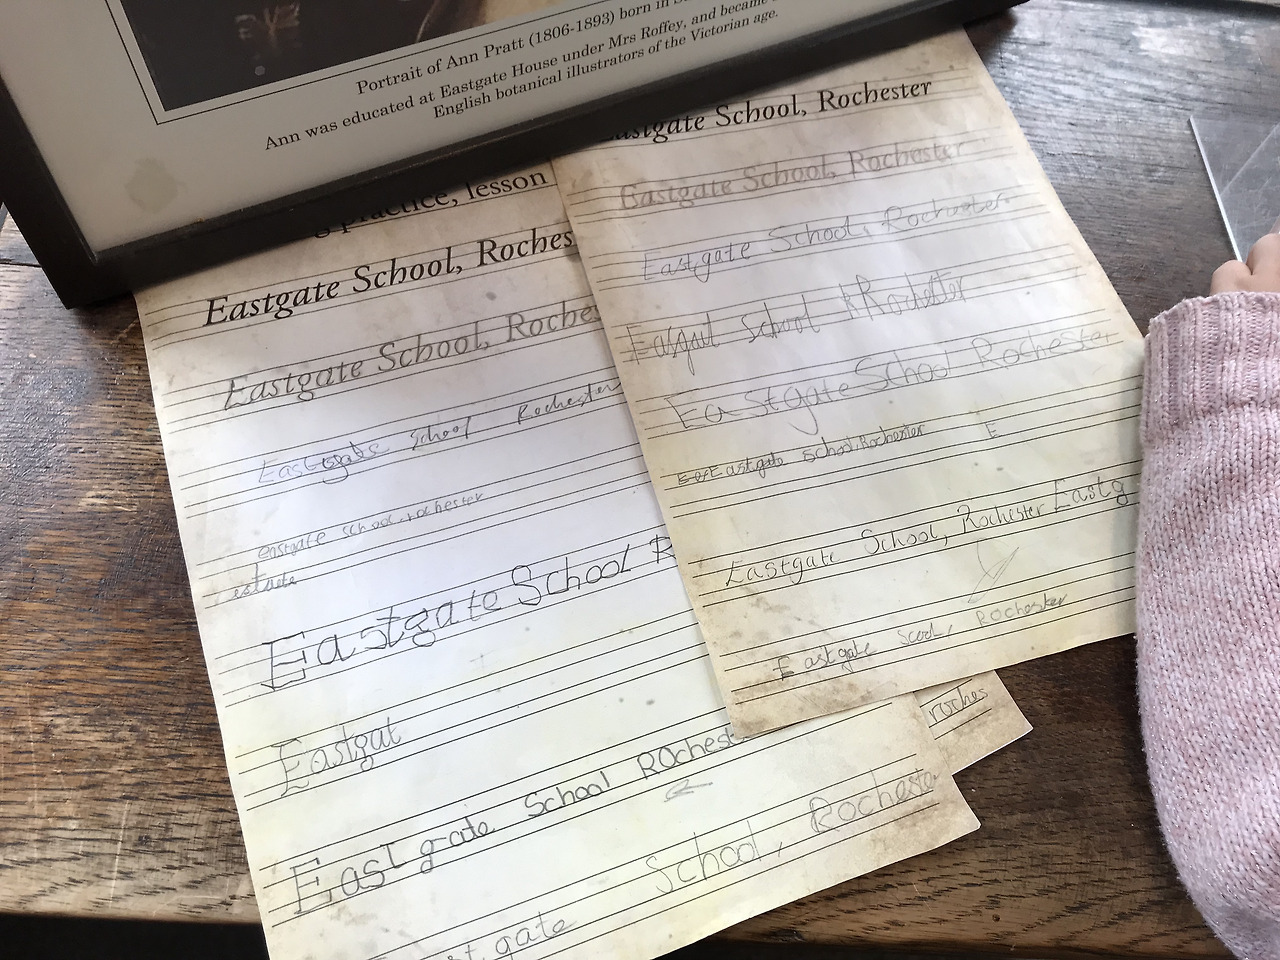 Portrait of Ann Pratt (1806-1893) born in
Ann was educated at Eastgate House under Mrs Roffey, and became
English botanical illustrators of the Victorian age.
practice, lesson
Eastgate School, Roches
Eastgate School, Roches
Eastgate School Rochester
eastgate school, rochester
estate
Eastgate School R
Eastgat
Eastgate School ROchest
gate School, Rocheste
Eastgate School, Rochester
Eastgate School, Rochester
Eastgate School, Rochester
School Rochester
Eastgate School Rochester
Eastgate School, Rochester E
Eastgate School, Rochester Eastg
Eastgate Scool, Rochester
roches